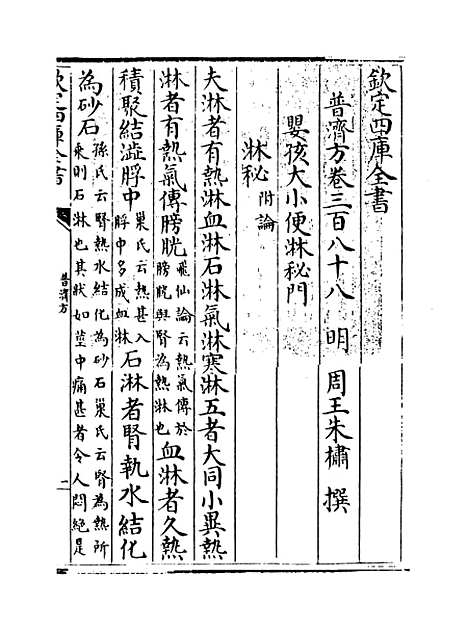 欽定四庫全書
普濟方卷三百八十八　明　周王朱橚　撰
嬰孩大小便淋秘門
淋秘附論
夫淋者有熱淋血淋石淋氣淋寒淋五者大同小異熱
淋者有熱氣傳膀胱飛仙論云熱氣傳於膀胱與腎為熱淋也血淋者久熱
積聚結澁脬中巢氏云熱甚入脬中多成血淋石淋者腎執水結化
為砂石孫氏云腎熱水結化為砂石巢氏云腎為熱所乘則石淋也其狀如莖中痛甚者令人悶絶是
欽定四庫全書
普濟方